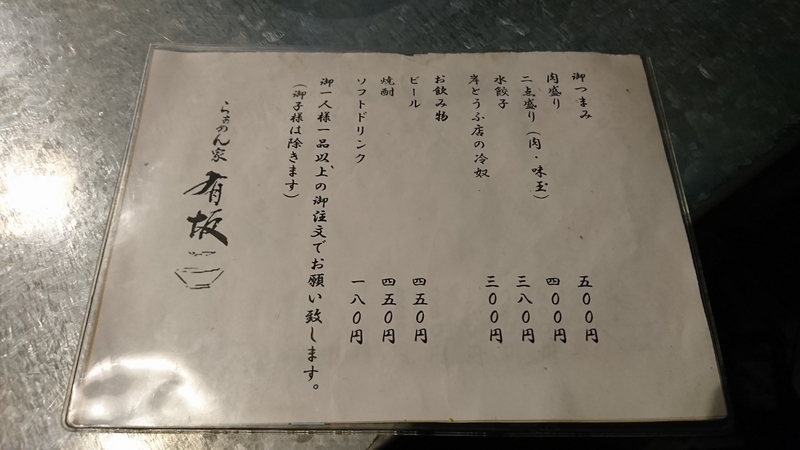 御つまみ
肉盛り 五〇〇円
二点盛り（肉・味玉） 四〇〇円
水餃子 三八〇円
岸とうふ店の冷奴 三〇〇円
お飲み物
ビール 四五〇円
焼酎 四五〇円
ソフトドリンク 一八〇円
御一人様一品以上の御注文でお願い致します。
（御子様は除きます）
らぁめん家 有坂